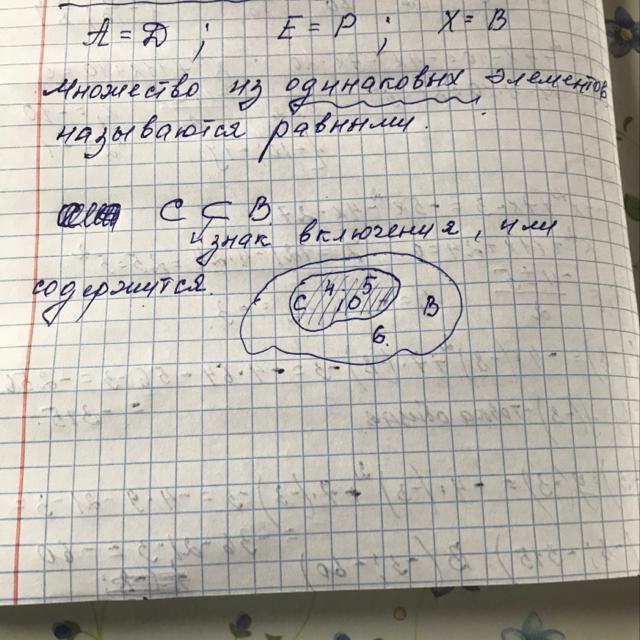 А = Д ; Е = Р ; Х = В
Множество из одинаковых элементов
называются равными.
С ⊂ В
знак включения, или
содержится.
С 4 5
1 0 В
6.